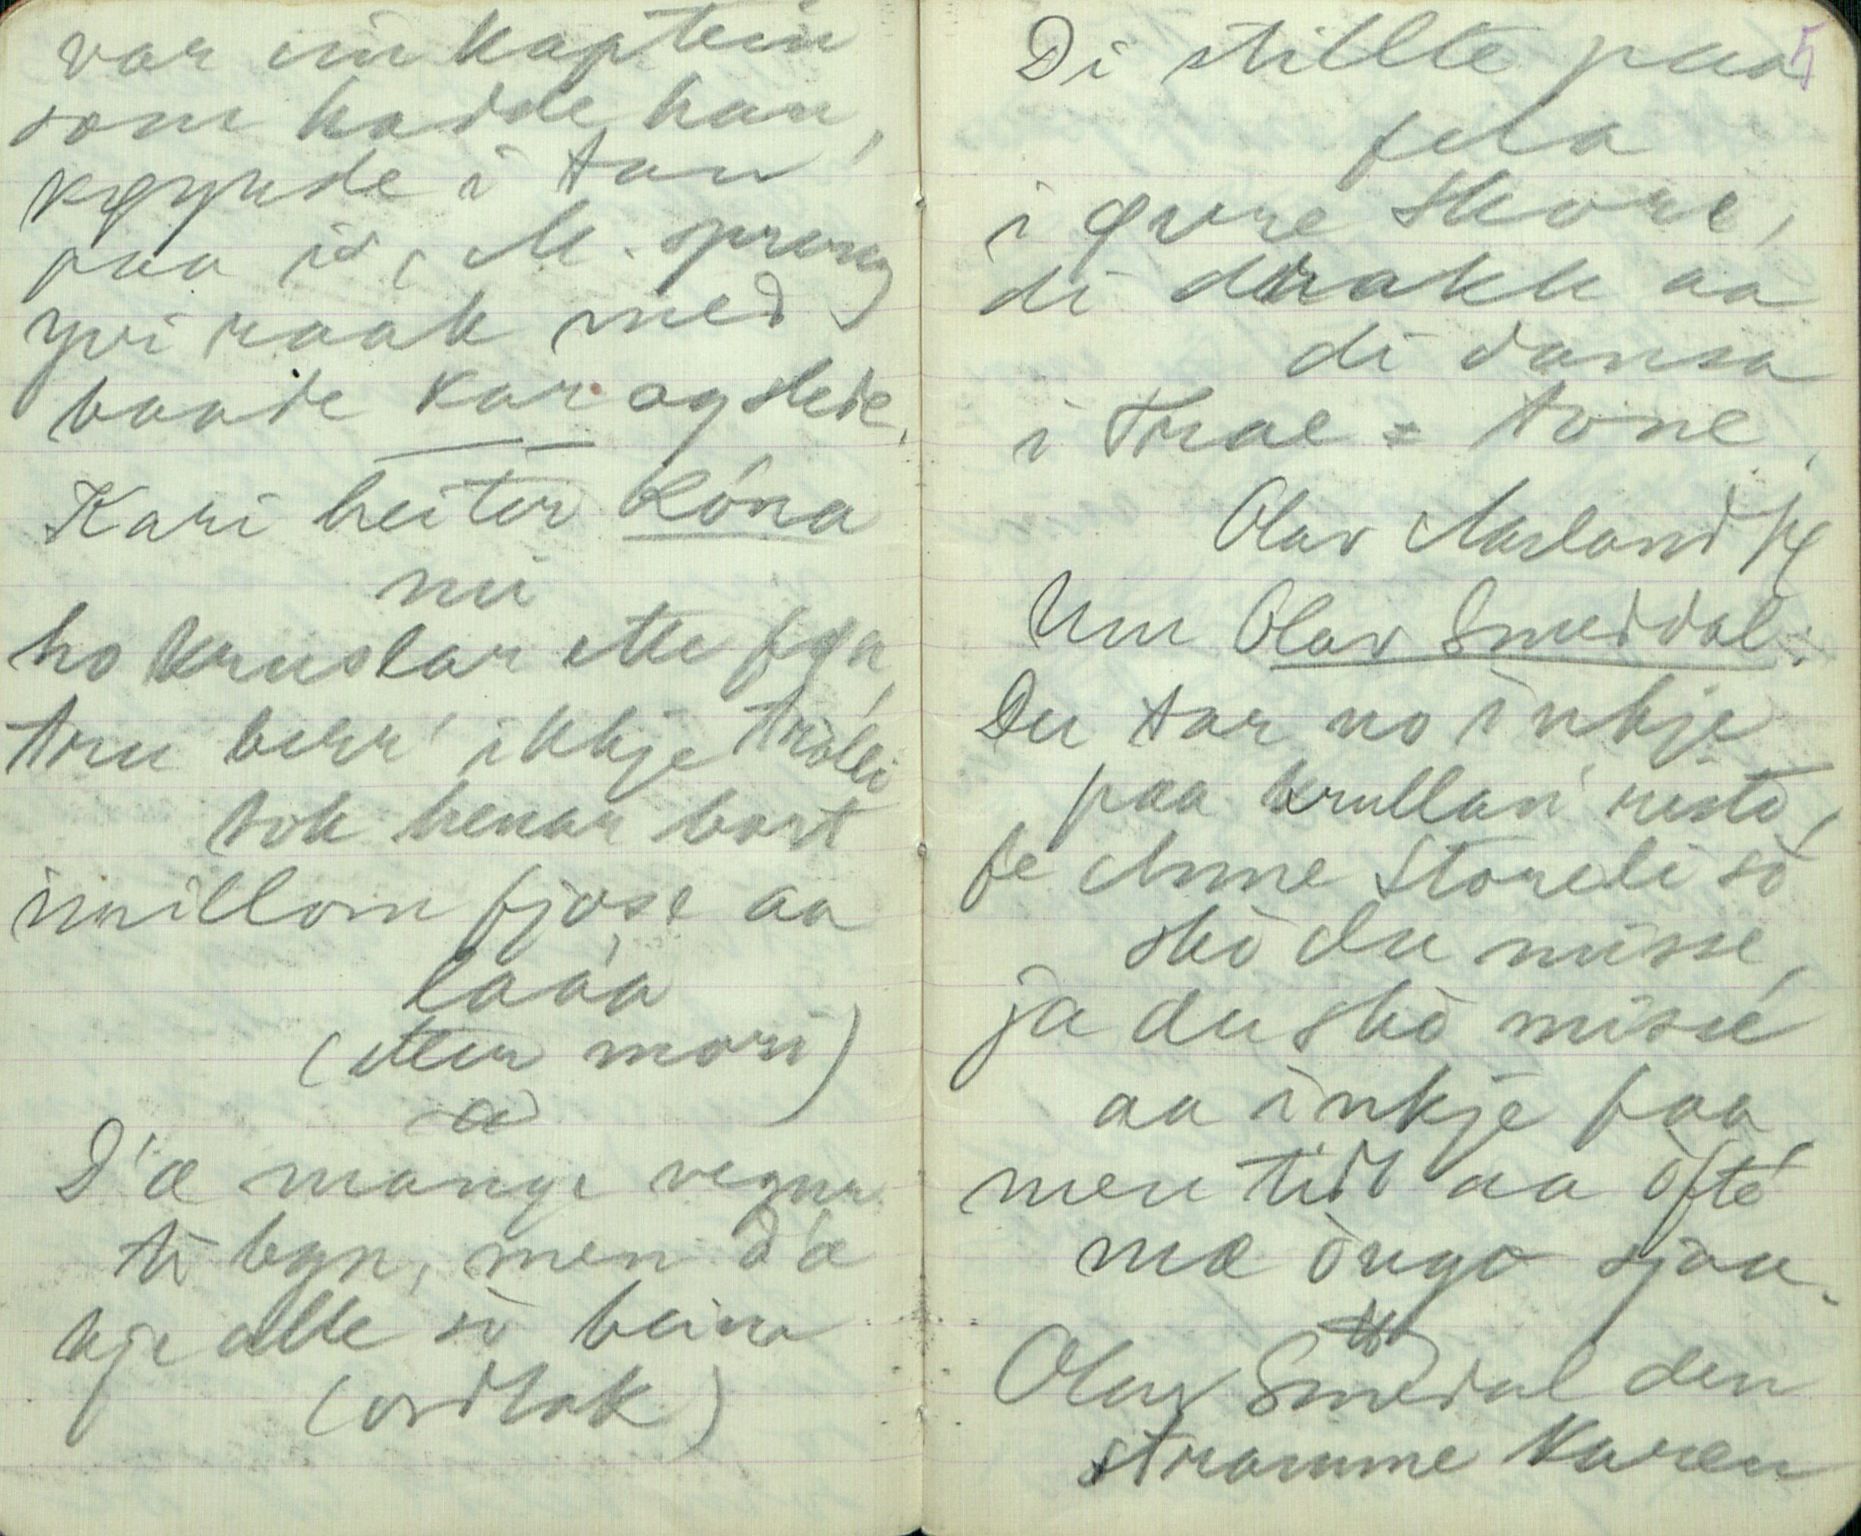 var ein kaptein
som hadde han,
køyrde i tan
paa is, M. sprang
yvi raak med
baade kar og slede.
Kari heiter kóna
mi
ho kruslar ette fyr,
tru berr' ikkje trolli
tok henar bort
imillom fjose aa
laaa
(etter mori)
D'æ mange vegar
ti byn, men d'æ
kje alle so beine
(ordtak)
5
Di stillte paa
fela
i øvre Skore,
di drakk aa
di dansa
i Trae = tone
Olav Aasland
Um Olav Smeddal:
Du tar no inkje
paa krullan' riste,
fe Anne Storeli so
sko du misse,
ja du sko misse
aa inkje faa,
men tidt aa ofte
mæ òugo sjaa.
Olav Smedal den
stramme karen